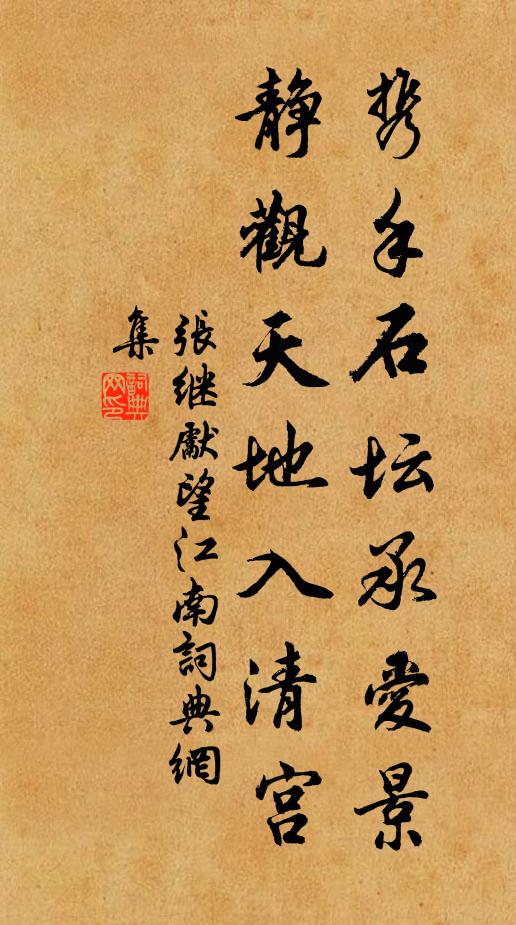 携手石坛承爱景
靜觀天地入清宫
張继獻望江南詞典網
集
詞典
网印